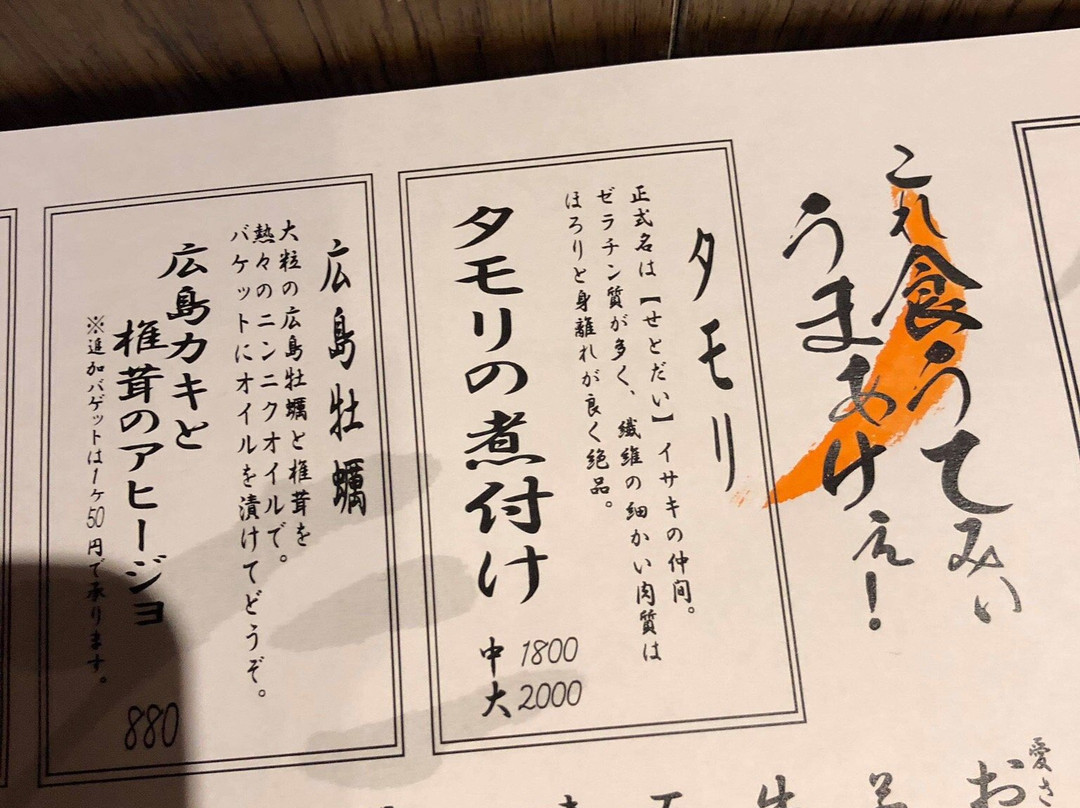 これ食うてみい
うまあけぇ!
タモリ
正式名は【せとだい】イサキの仲間。
ゼラチン質が多く、繊維の細かい肉質は
ほろりと身離れが良く絶品。
タモリの煮付け
中 1800
大 2000
広島牡蠣
大粒の広島牡蠣と椎茸を
熱々のニンニクオイルで。
バケットにオイルを漬けてどうぞ。
広島カキと
椎茸のアヒージョ
※追加バゲットは1ヶ50円で承ります。
880
愛さ
お